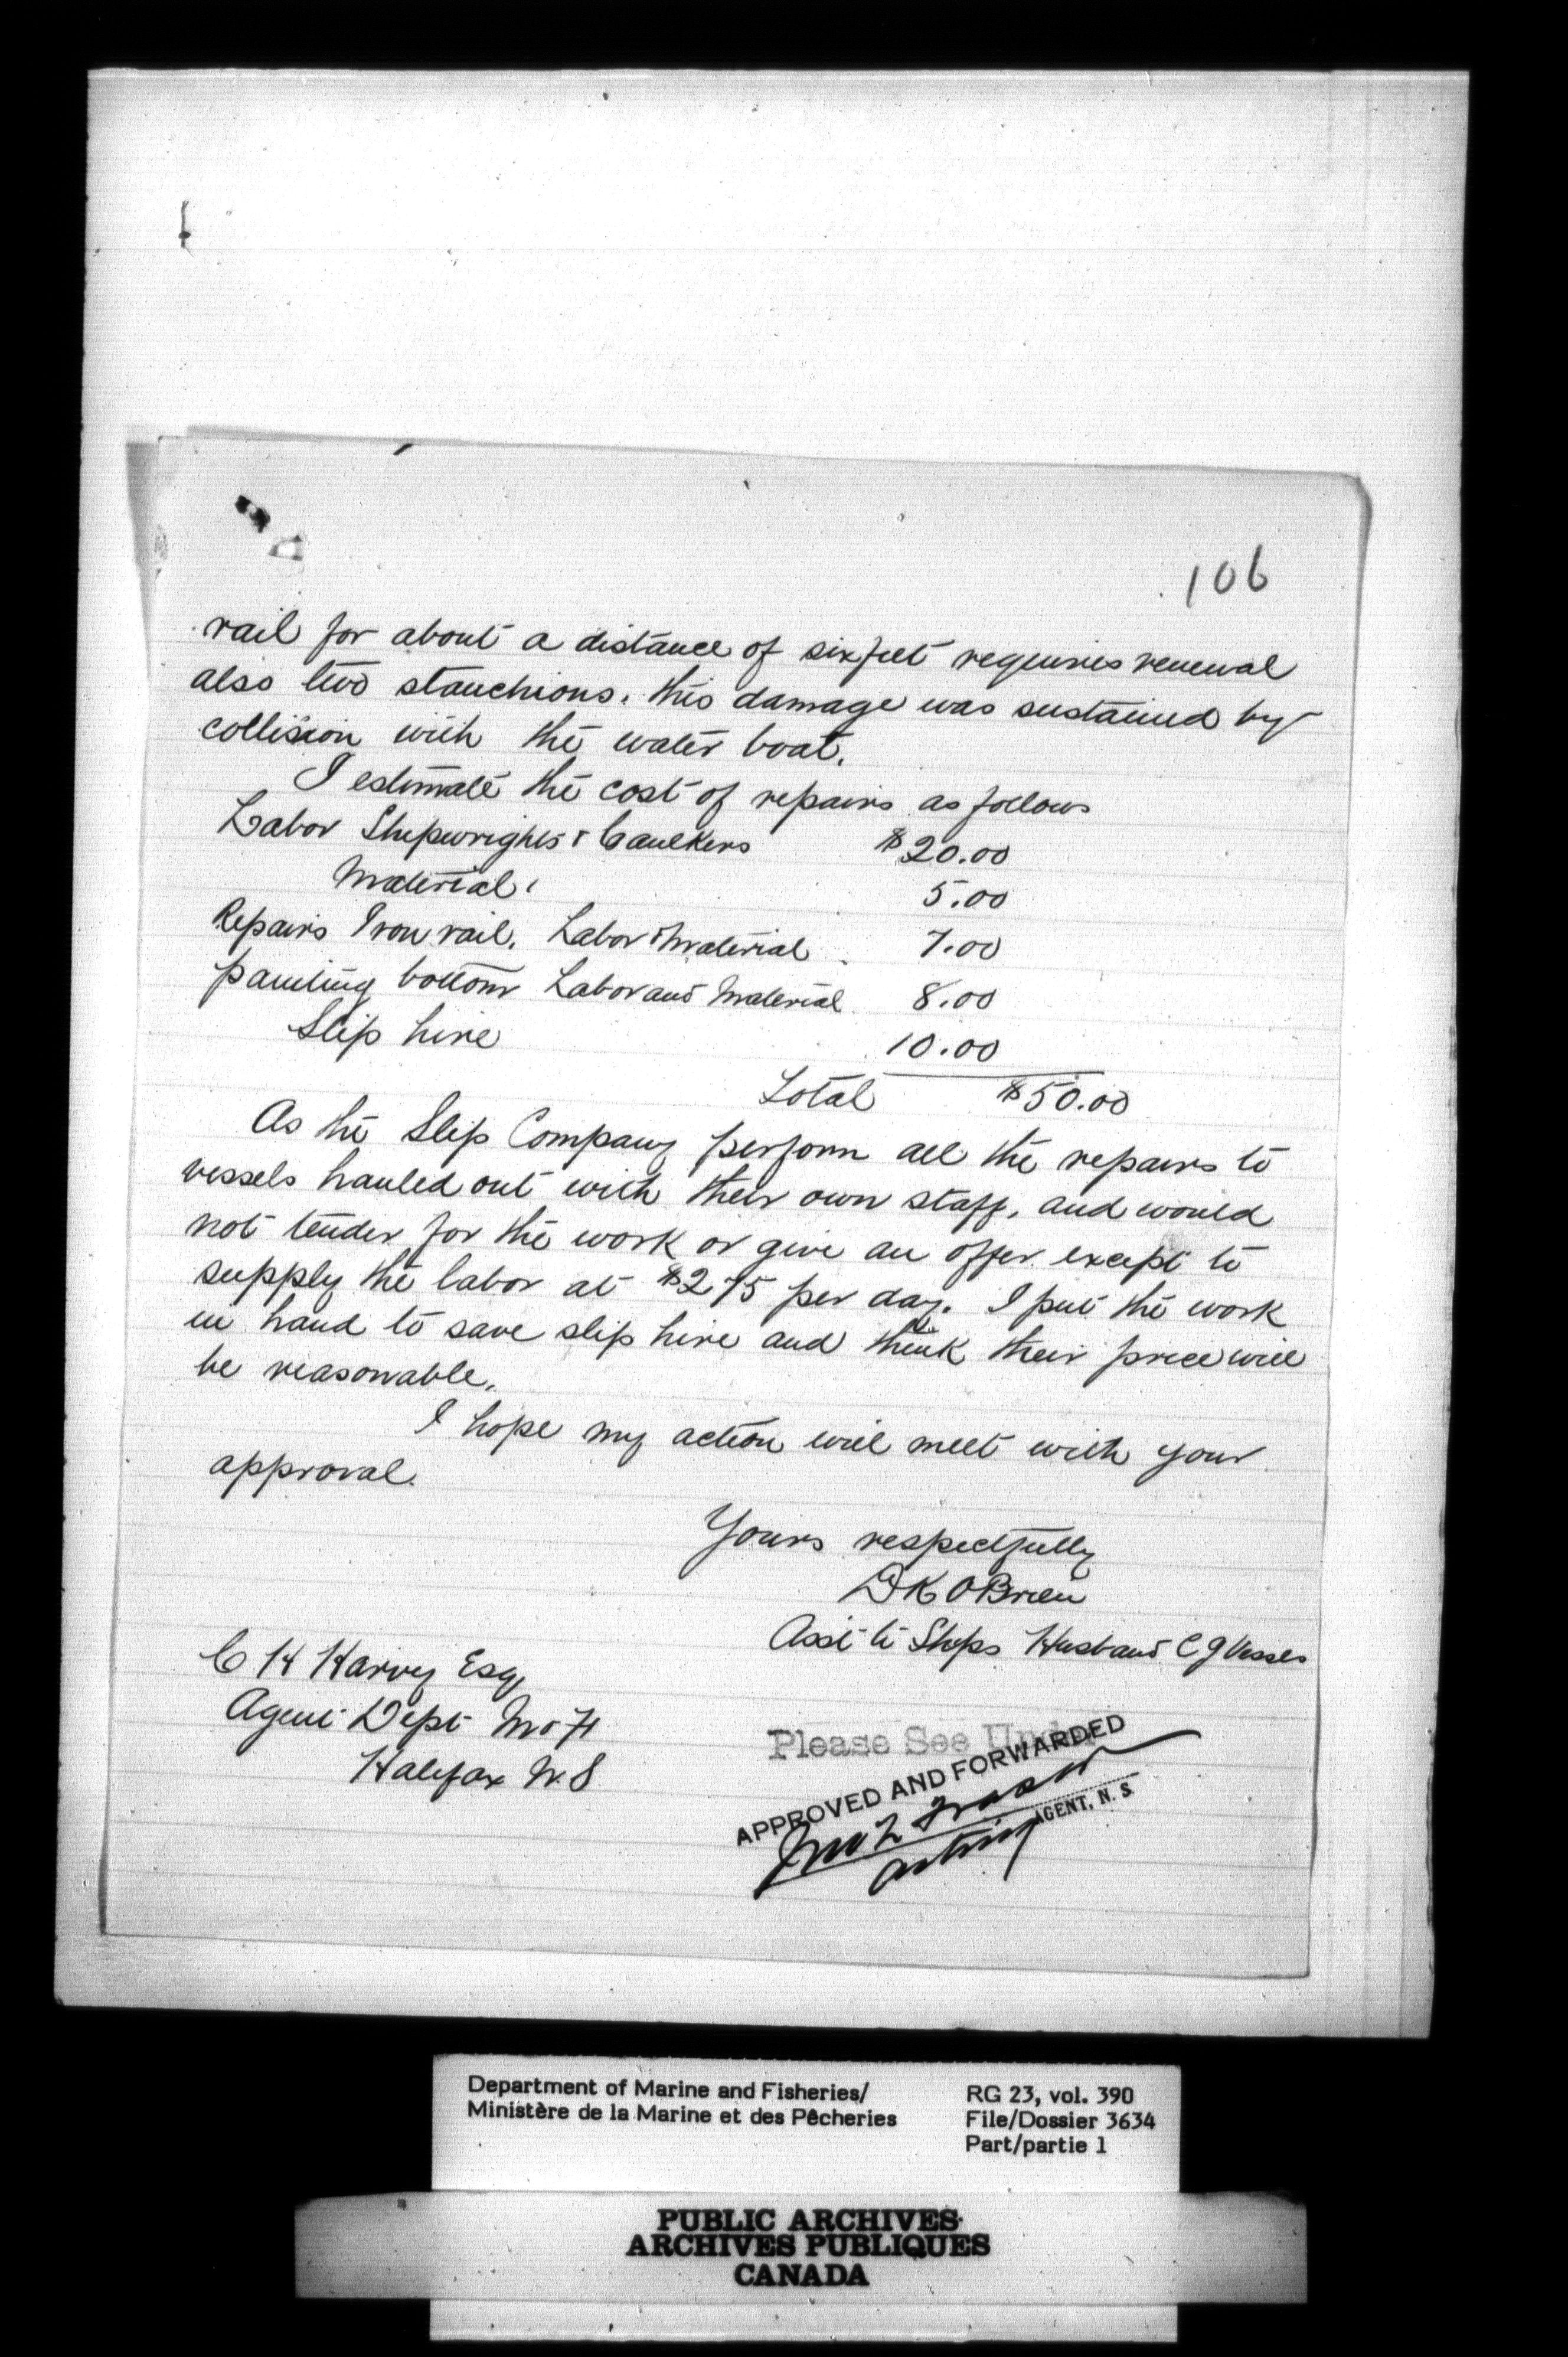 106
rail for about a distance of six feet requires renewal
also two stanchions. this damage was sustained by
collision with the water boat.
I estimate the cost of repairs as follows
Labor Shipwrights & Caulkers $20.00
Material. 5.00
Repairs Iron rail. Labor & Material 7.00
painting bottom Labor and Material 8.00
Slip hire 10.00
Total $50.00
As the Slip Company perform all the repairs to
vessels hauled out with their own staff, and would
not tender for the work or give an offer except to
supply the labor at $2.75 per day. I put the work
in hand to save slip hire and think their price will
be reasonable.
I hope my action will meet with your
approval.
Yours respectfully
D K O Brien
Asst to Ships Husband C G Vessels
C H Harvey Esq
Agent Dept M & F
Halifax N.S
Please See Under
APPROVED AND FORWARDED
AGENT, N. S.
acting
Department of Marine and Fisheries/ RG 23, vol. 390
Ministère de la Marine et des Pêcheries File/Dossier 3634
Part/partie 1
PUBLIC ARCHIVES
ARCHIVES PUBLIQUES
CANADA